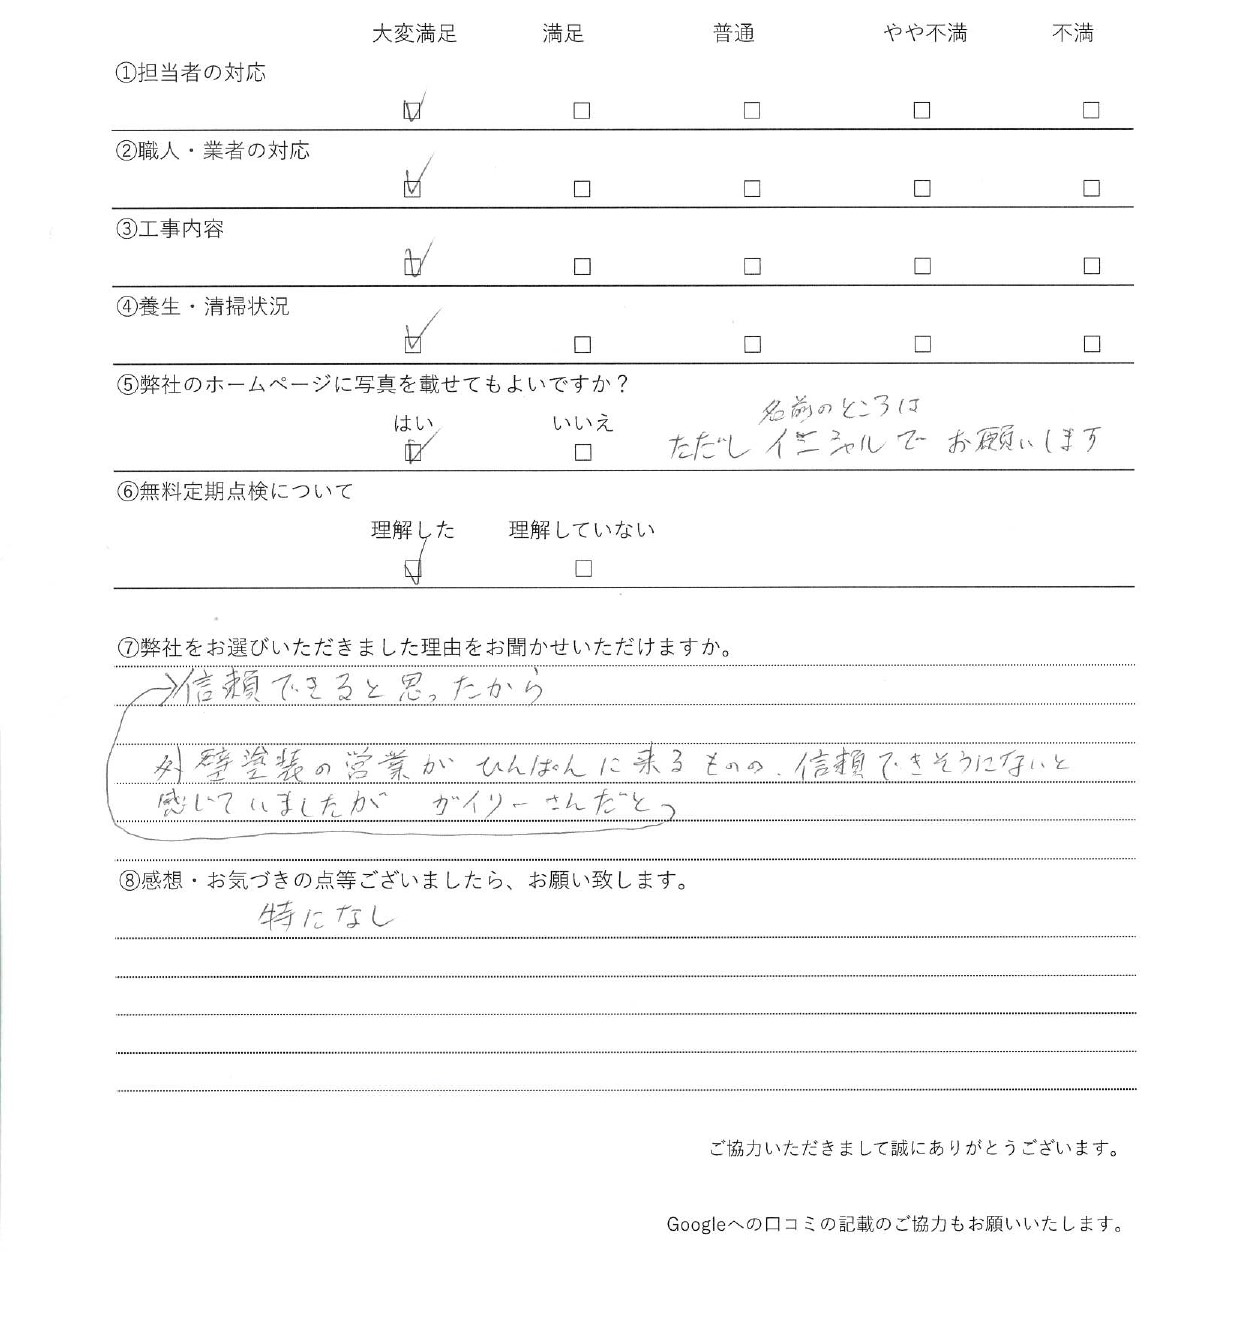 大変満足 満足 普通 やや不満 不満
①担当者の対応
☑ □ □ □ □
②職人・業者の対応
☑ □ □ □ □
③工事内容
☑ □ □ □ □
④養生・清掃状況
☑ □ □ □ □
⑤弊社のホームページに写真を載せてもよいですか？
名前のところは
はい いいえ
☑ □ ただし イニシャルで お願いします
⑥無料定期点検について
理解した 理解していない
☑ □
⑦弊社をお選びいただきました理由をお聞かせいただけますか。
→信頼できると思ったから
外壁塗装の営業が ひんぱんに来るものの、信頼できそうにないと
感じていましたが ガイソーさんだと
⑧感想・お気づきの点等ございましたら、お願い致します。
特になし
ご協力いただきまして誠にありがとうございます。
Googleへの口コミの記載のご協力もお願いいたします。